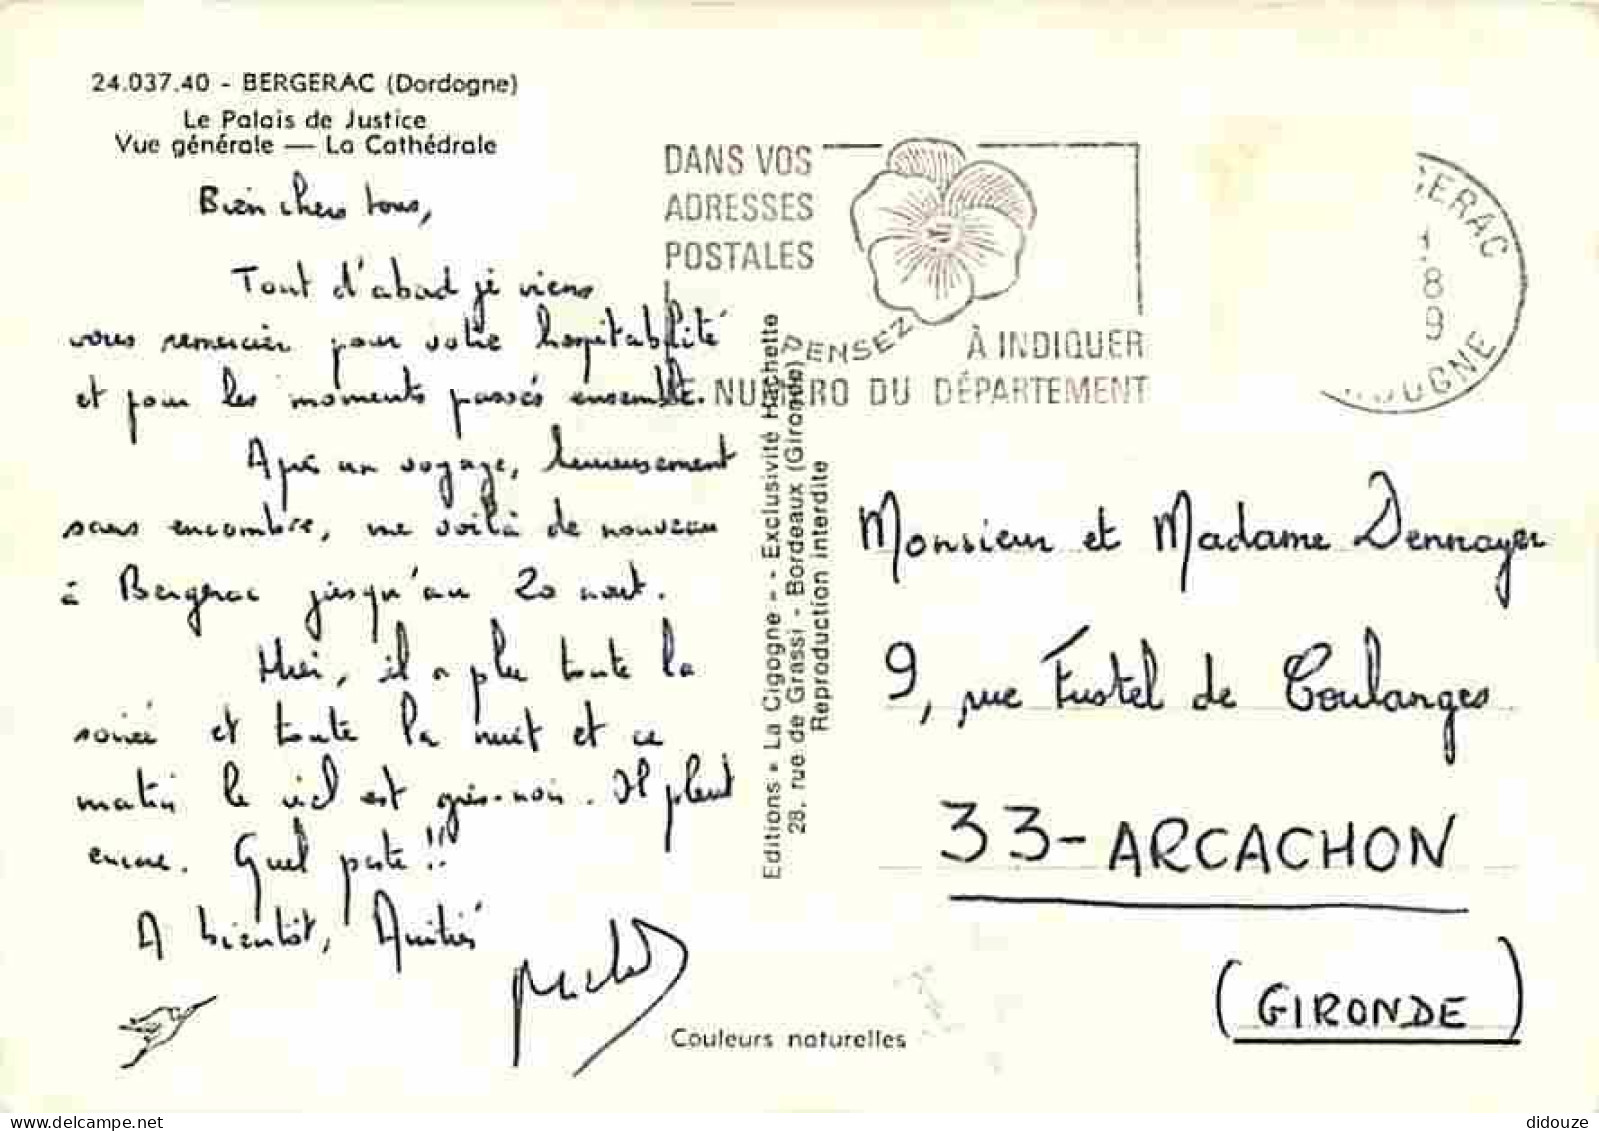 24.037.40 - BERGERAC (Dordogne)
Le Palais de Justice
Vue générale — La Cathédrale
Bien chers tous,
Tout d'abord je viens
vous remercier pour votre hospitabilité
et pour les moments passés ensemble.
Après un voyage, heureusement
sans encombre, me voilà de nouveau
à Bergerac jusqu'au 20 août.
Hier, il a plu toute la
soirée et toute la nuit et ce
matin le ciel est gris-noir. Il pleut
encore. Quel peste !!
A bientôt, Amitiés
Couleurs naturelles
Editions « La Cigogne » - Exclusivité Hachette
28, rue de Grassi - Bordeaux (Gironde)
Reproduction interdite
DANS VOS
ADRESSES
POSTALES
PENSEZ
À INDIQUER
LE NUMÉRO DU DÉPARTEMENT
GERAC
8
9
DOGNE
Monsieur et Madame Dennayer
9, rue Fustel de Coulanges
33-ARCACHON
(GIRONDE)
delcampe.net
didouze